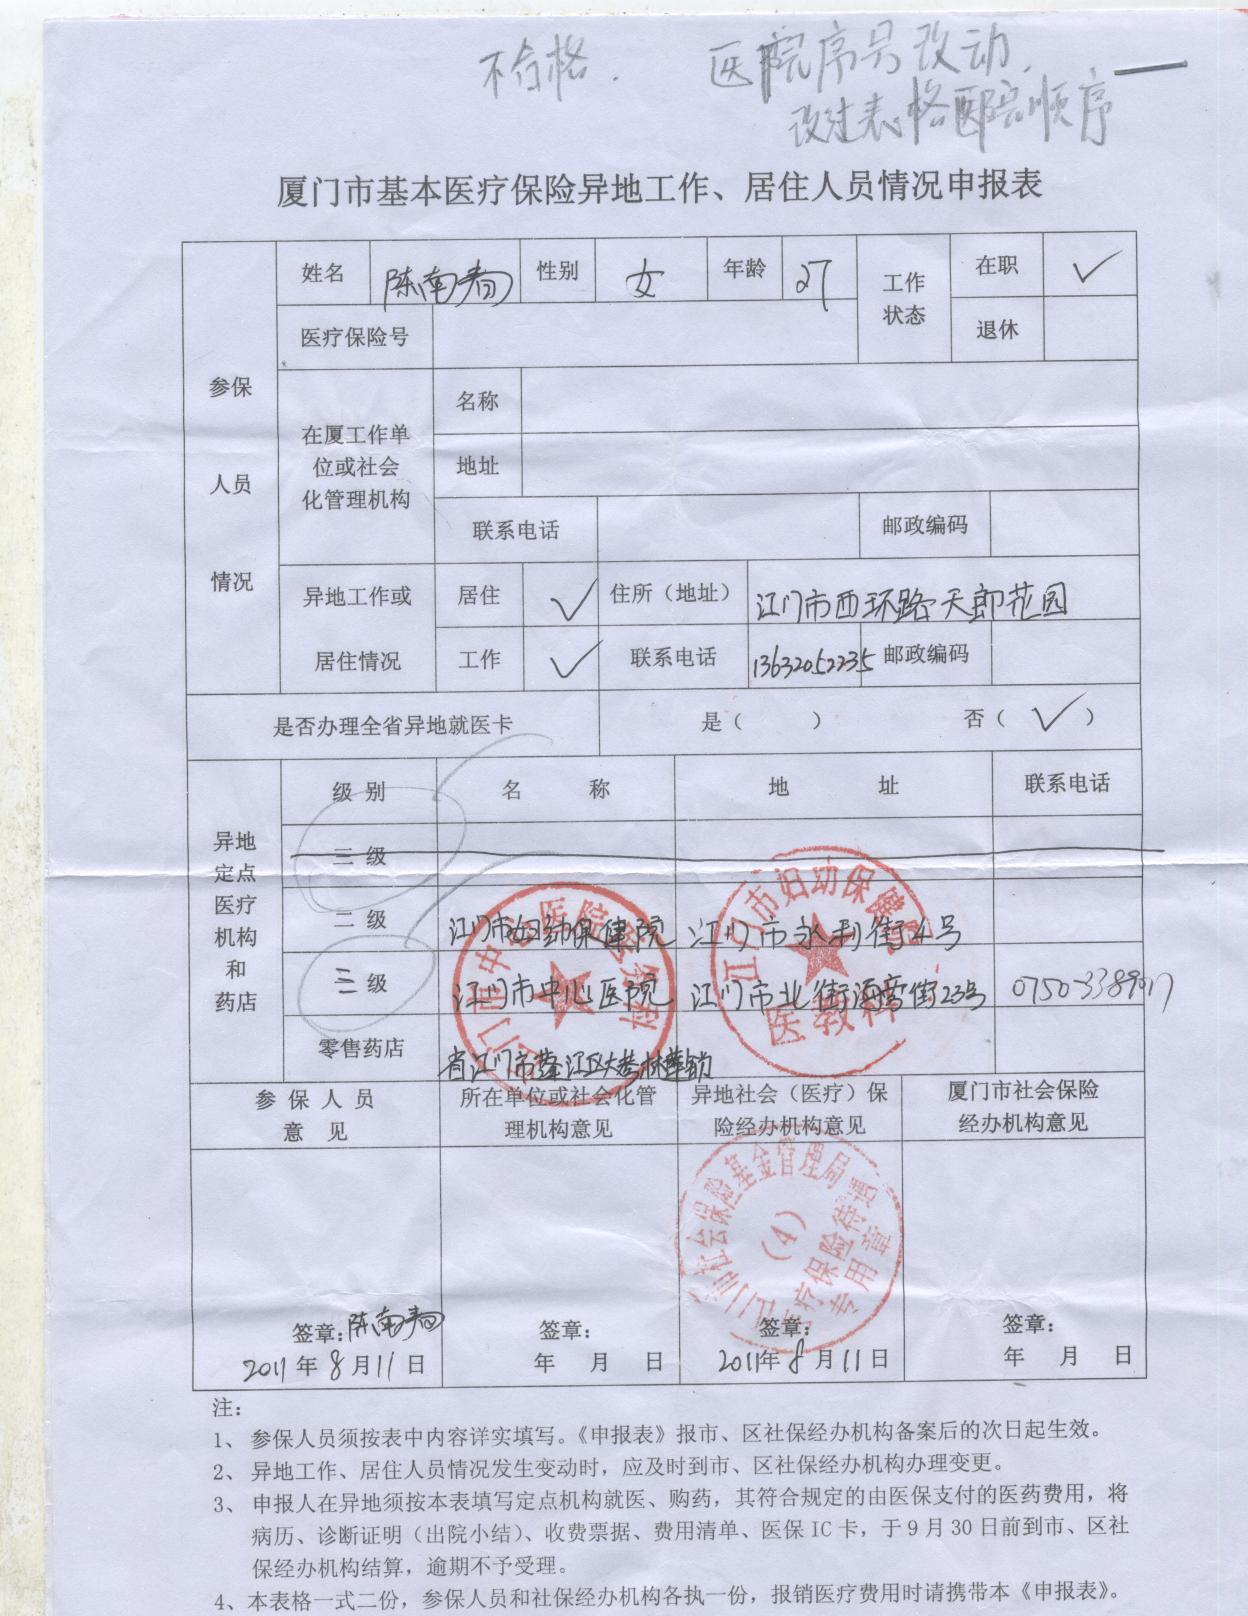 不合格.  医院序号改动.
改过表格医院顺序
厦门市基本医疗保险异地工作、居住人员情况申报表
参保人员情况
姓名 陈南春 性别 女 年龄 27 工作状态 在职 ✓
退休
医疗保险号
在厦工作单位或社会化管理机构 名称
地址
联系电话 邮政编码
异地工作或居住情况 居住 ✓ 住所（地址） 江门市西环路天郎花园
工作 ✓ 联系电话 13632052235 邮政编码
是否办理全省异地就医卡 是（ ） 否（ ✓ ）
异地定点医疗机构和药店
级别 名 称 地 址 联系电话
三级
二级 江门市妇幼保健院 江门市永利街4号
三级 江门市中心医院 江门市北街海旁街23号 0750-3389017
零售药店 省江门市蓬江区大参林连锁
参保人员意见 所在单位或社会化管理机构意见 异地社会（医疗）保险经办机构意见 厦门市社会保险经办机构意见
江门市中心医院医务科
江门市妇幼保健院
医教科
江门市社会保险基金管理局
（4）
医疗保险待遇
专用章
签章:陈南春 签章: 签章: 签章:
2011年8月11日 年 月 日 2011年8月11日 年 月 日
注:
1、参保人员须按表中内容详实填写。《申报表》报市、区社保经办机构备案后的次日起生效。
2、异地工作、居住人员情况发生变动时，应及时到市、区社保经办机构办理变更。
3、申报人在异地须按本表填写定点机构就医、购药，其符合规定的由医保支付的医药费用，将
病历、诊断证明（出院小结）、收费票据、费用清单、医保IC卡，于9月30日前到市、区社
保经办机构结算，逾期不予受理。
4、本表格一式二份，参保人员和社保经办机构各执一份，报销医疗费用时请携带本《申报表》。